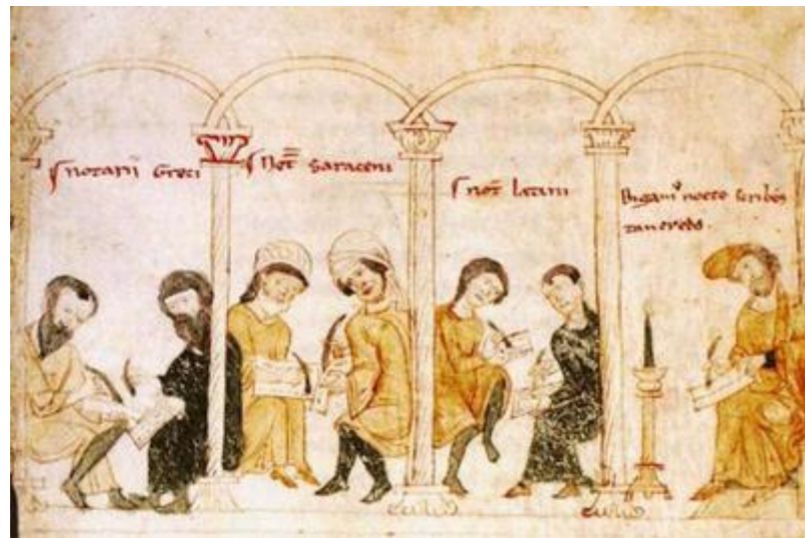 notarii Greci
Not Saraceni
not latini
Bigam' nocte scribēs
tancredo.